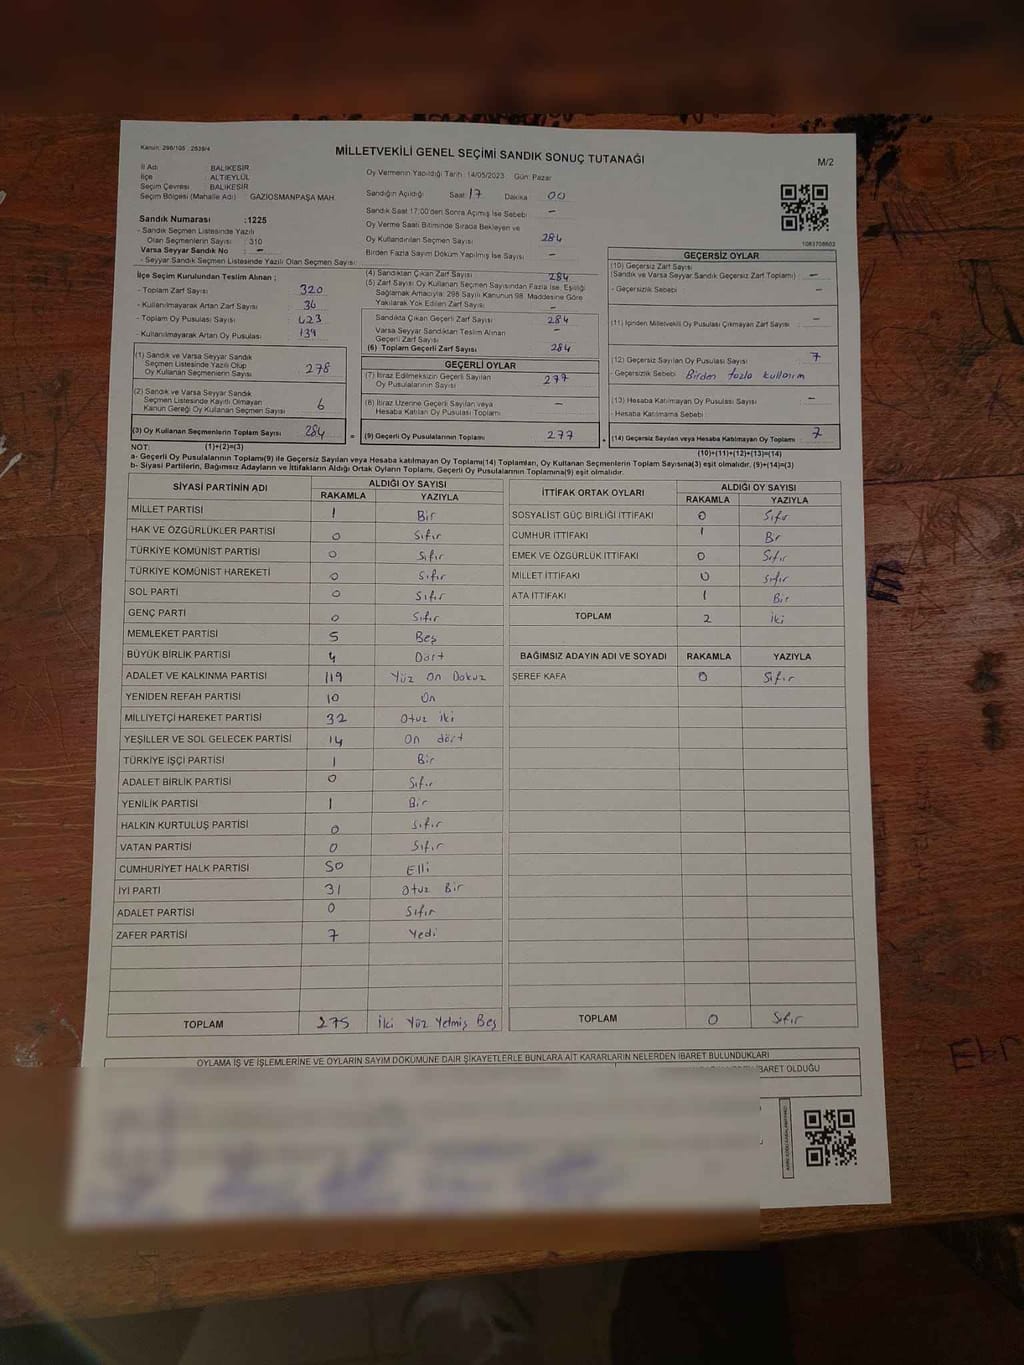 Kanun: 298/105 , 2839/4
MİLLETVEKİLİ GENEL SEÇİMİ SANDIK SONUÇ TUTANAĞI
M/2
İl Adı : BALIKESİR
İlçe : ALTIEYLÜL
Seçim Çevresi : BALIKESİR
Seçim Bölgesi (Mahalle Adı) GAZİOSMANPAŞA MAH.
Oy Vermenin Yapıldığı Tarih : 14/05/2023 Gün: Pazar
Sandığın Açıldığı Saat 17 Dakika 00
Sandık Saat 17:00'den Sonra Açılmış İse Sebebi : -
Oy Verme Saati Bitiminde Sırada Bekleyen ve
Oy Kullandırılan Seçmen Sayısı : 284
Birden Fazla Sayım Döküm Yapılmış İse Sayısı : -
Sandık Numarası :1225
- Sandık Seçmen Listesinde Yazılı
Olan Seçmenlerin Sayısı : 310
Varsa Seyyar Sandık No : -
- Seyyar Sandık Seçmen Listesinde Yazılı Olan Seçmen Sayısı:
İlçe Seçim Kurulundan Teslim Alınan ;
- Toplam Zarf Sayısı : 320
- Kullanılmayarak Artan Zarf Sayısı : 36
- Toplam Oy Pusulası Sayısı : 423
- Kullanılmayarak Artan Oy Pusulası : 139
(1) Sandık ve Varsa Seyyar Sandık
Seçmen Listesinde Yazılı Olup
Oy Kullanan Seçmenlerin Sayısı : 278
(2) Sandık ve Varsa Seyyar Sandık
Seçmen Listesinde Kayıtlı Olmayan
Kanun Gereği Oy Kullanan Seçmen Sayısı : 6
(3) Oy Kullanan Seçmenlerin Toplam Sayısı : 284
(4) Sandıktan Çıkan Zarf Sayısı : 284
(5) Zarf Sayısı Oy Kullanan Seçmen Sayısından Fazla İse, Eşitliği
Sağlamak Amacıyla; 298 Sayılı Kanunun 98. Maddesine Göre
Yakılarak Yok Edilen Zarf Sayısı : -
Sandıkta Çıkan Geçerli Zarf Sayısı : 284
Varsa Seyyar Sandıktan Teslim Alınan
Geçerli Zarf Sayısı : -
(6) Toplam Geçerli Zarf Sayısı : 284
GEÇERLİ OYLAR
(7) İtiraz Edilmeksizin Geçerli Sayılan
Oy Pusulalarının Sayısı : 277
(8) İtiraz Üzerine Geçerli Sayılan veya
Hesaba Katılan Oy Pusulası Toplamı : -
= (9) Geçerli Oy Pusulalarının Toplamı : 277
1083708603
GEÇERSİZ OYLAR
(10) Geçersiz Zarf Sayısı
(Sandık ve Varsa Seyyar Sandık Geçersiz Zarf Toplamı) : -
- Geçersizlik Sebebi : -
(11) İçinden Milletvekili Oy Pusulası Çıkmayan Zarf Sayısı : -
(12) Geçersiz Sayılan Oy Pusulası Sayısı : 7
Geçersizlik Sebebi : Birden fazla kullanım
(13) Hesaba Katılmayan Oy Pusulası Sayısı : -
Hesaba Katılmama Sebebi :
+ (14) Geçersiz Sayılan veya Hesaba Katılmayan Oy Toplamı : 7
NOT: (1)+(2)=(3) (10)+(11)+(12)+(13)=(14)
a- Geçerli Oy Pusulalarının Toplamı(9) ile Geçersiz Sayılan veya Hesaba katılmayan Oy Toplamı(14) Toplamları, Oy Kullanan Seçmenlerin Toplam Sayısına(3) eşit olmalıdır. (9)+(14)=(3)
b- Siyasi Partilerin, Bağımsız Adayların ve İttifakların Aldığı Ortak Oyların Toplamı, Geçerli Oy Pusulalarının Toplamına(9) eşit olmalıdır.
SİYASİ PARTİNİN ADI ALDIĞI OY SAYISI
RAKAMLA YAZIYLA
MİLLET PARTİSİ 1 Bir
HAK VE ÖZGÜRLÜKLER PARTİSİ 0 Sıfır
TÜRKİYE KOMÜNİST PARTİSİ 0 Sıfır
TÜRKİYE KOMÜNİST HAREKETİ 0 Sıfır
SOL PARTİ 0 Sıfır
GENÇ PARTİ 0 Sıfır
MEMLEKET PARTİSİ 5 Beş
BÜYÜK BİRLİK PARTİSİ 4 Dört
ADALET VE KALKINMA PARTİSİ 119 Yüz On Dokuz
YENİDEN REFAH PARTİSİ 10 On
MİLLİYETÇİ HAREKET PARTİSİ 32 Otuz iki
YEŞİLLER VE SOL GELECEK PARTİSİ 14 On dört
TÜRKİYE İŞÇİ PARTİSİ 1 Bir
ADALET BİRLİK PARTİSİ 0 Sıfır
YENİLİK PARTİSİ 1 Bir
HALKIN KURTULUŞ PARTİSİ 0 Sıfır
VATAN PARTİSİ 0 Sıfır
CUMHURİYET HALK PARTİSİ 50 Elli
İYİ PARTİ 31 Otuz Bir
ADALET PARTİSİ 0 Sıfır
ZAFER PARTİSİ 7 Yedi
TOPLAM 275 İki Yüz Yetmiş Beş
İTTİFAK ORTAK OYLARI ALDIĞI OY SAYISI
RAKAMLA YAZIYLA
SOSYALİST GÜÇ BİRLİĞİ İTTİFAKI 0 Sıfır
CUMHUR İTTİFAKI 1 Bir
EMEK VE ÖZGÜRLÜK İTTİFAKI 0 Sıfır
MİLLET İTTİFAKI 0 Sıfır
ATA İTTİFAKI 1 Bir
TOPLAM 2 İki
BAĞIMSIZ ADAYIN ADI VE SOYADI RAKAMLA YAZIYLA
ŞEREF KAFA 0 Sıfır
TOPLAM 0 Sıfır
OYLAMA İŞ VE İŞLEMLERİNE VE OYLARIN SAYIM DÖKÜMÜNE DAİR ŞİKAYETLERLE BUNLARA AİT KARARLARIN NELERDEN İBARET BULUNDUKLARI
İBARET OLDUĞU
Ebr